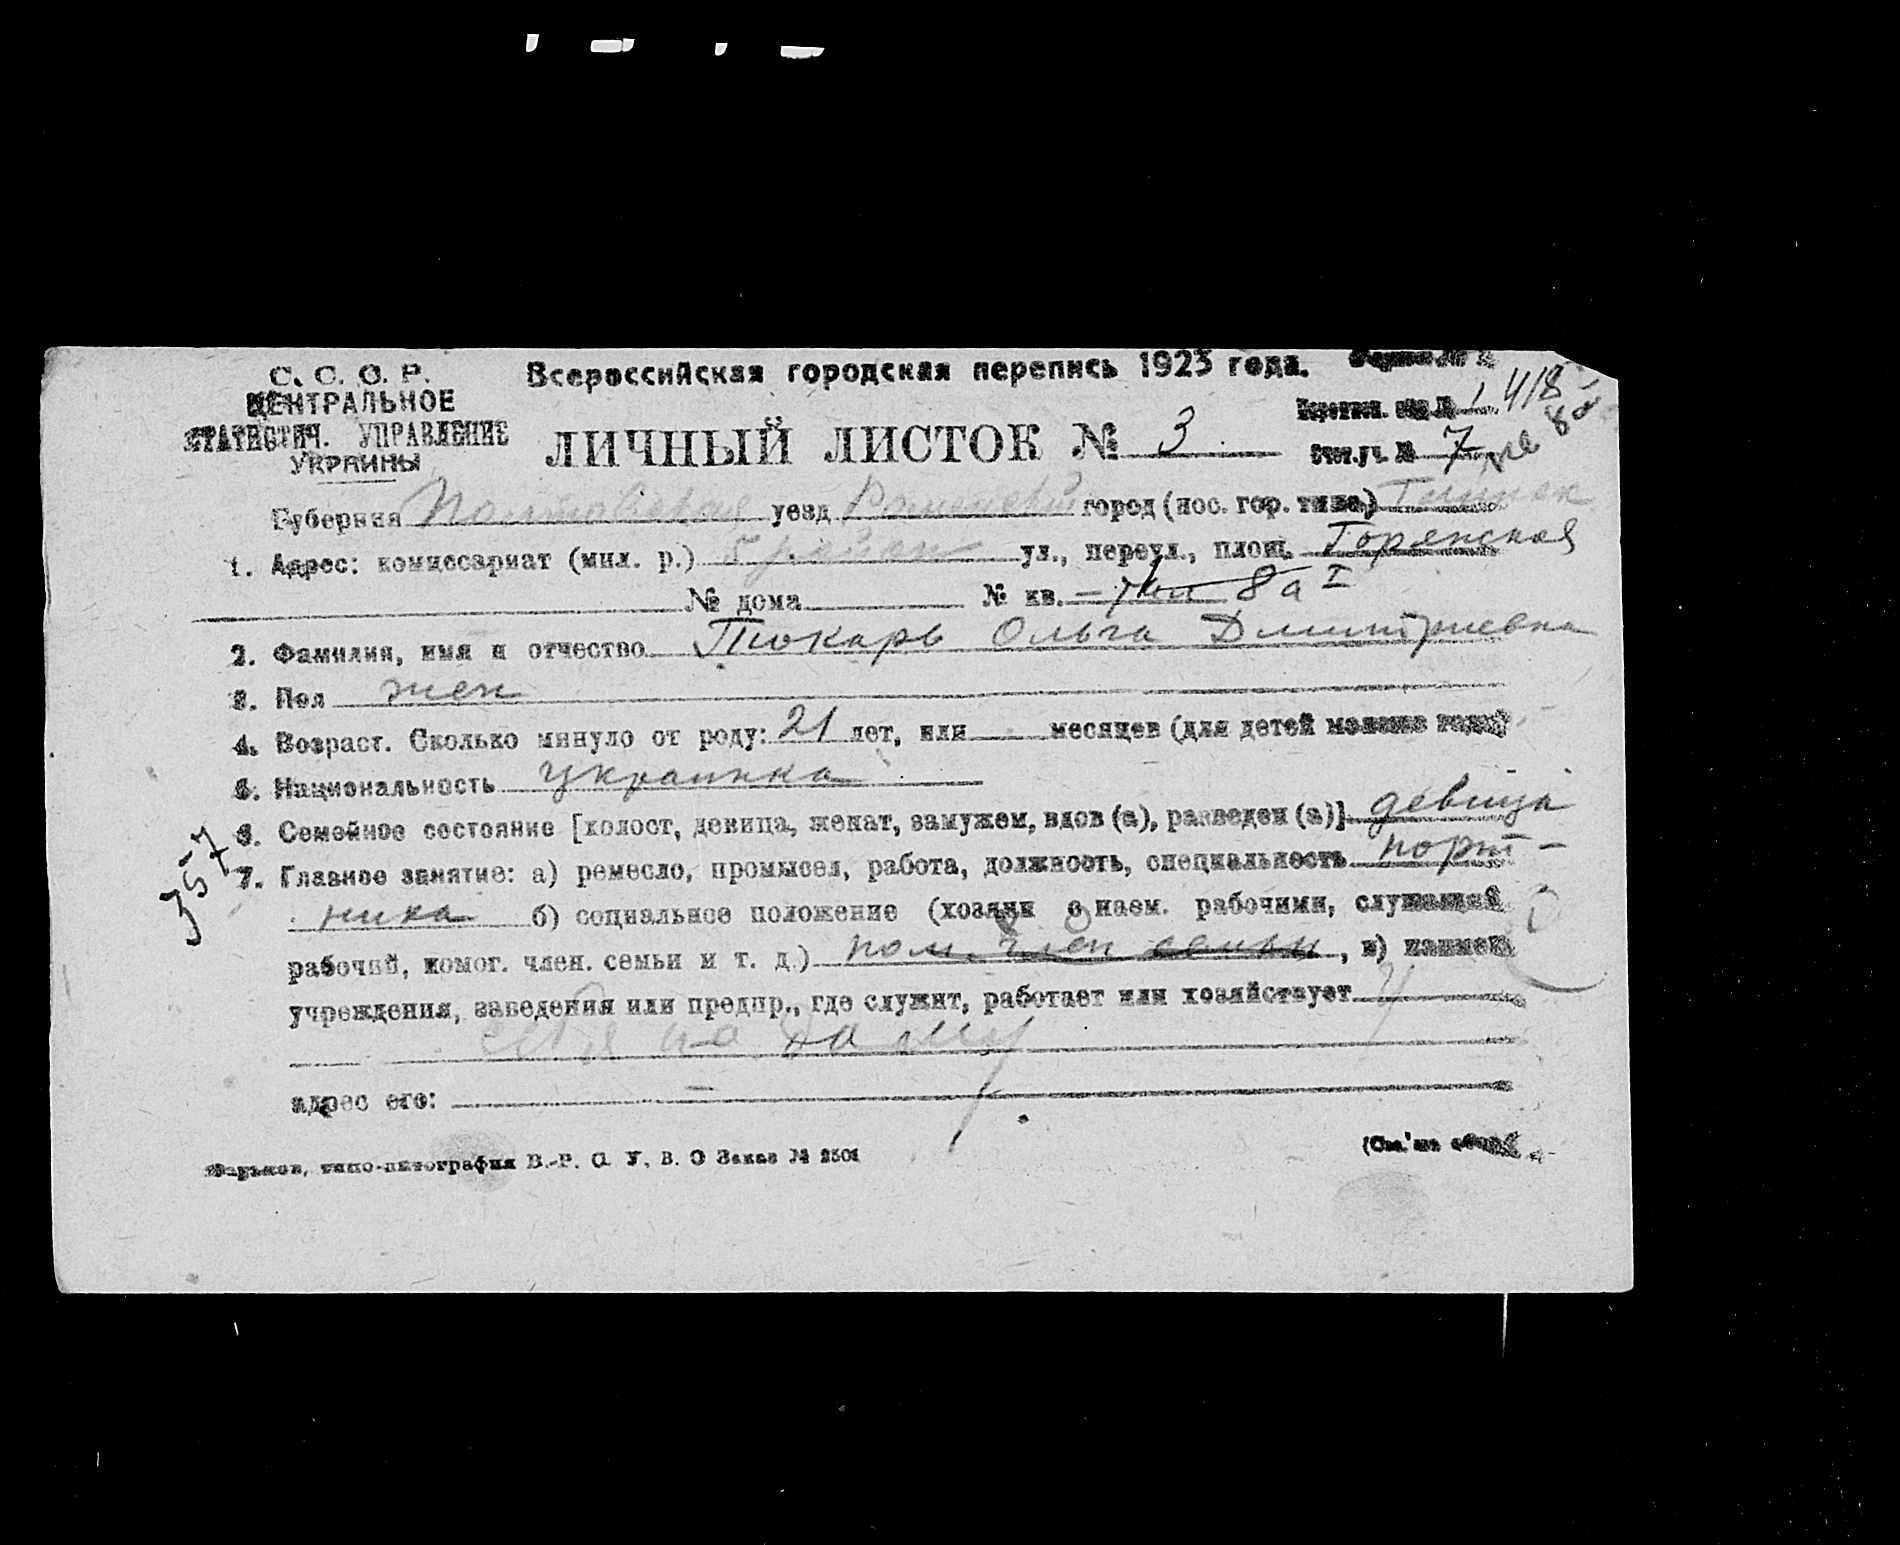 С. С. С. Р.
ЦЕНТРАЛЬНОЕ
СТАТИСТИЧ. УПРАВЛЕНИЕ
УКРАИНЫ
Всероссийская городская перепись 1923 года.
ЛИЧНЫЙ ЛИСТОК № 3
418
Счет.уч. № 7
Губерния Полтавская уезд Роменский город (пос. гор. типа)
1. Адрес: комиссариат (мил. р.) район ул., переул., площ.
№ дома № кв. — 8а I
2. Фамилия, имя и отчество Токарь Ольга Дмитриевна
3. Пол жен
4. Возраст. Сколько минуло от роду: 21 лет, или месяцев (для детей моложе года)
5. Национальность украинка
6. Семейное состояние [холост, девица, женат, замужем, вдов (а), разведен (а)] девица
7. Главное занятие: а) ремесло, промысел, работа, должность, специальность порт-
ниха б) социальное положение (хозяин с наем. рабочими, служащий
рабочий, комог. член. семьи и т. д.) пом. член семьи, в) наимен.
учреждения, заведения или предпр., где служит, работает или хозяйствует у
себя на дому
адрес его: —
357
Харьков, типо-литография В.-Р. С. У. В. О Заказ №
(См. на обор.